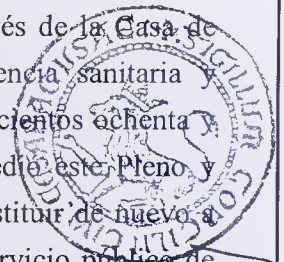 és de la Casa de
encia sanitaria y
cientos ochenta y
edió este Pleno y
stituir de nuevo a
ervicio público de
SIGILLUM